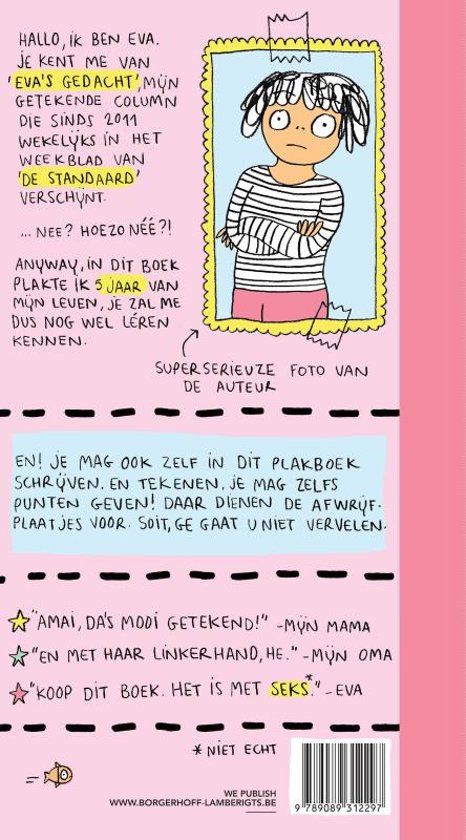 HALLO, IK BEN EVA.
JE KENT ME VAN
'EVA'S GEDACHT', MIJN
GETEKENDE COLUMN
DIE SINDS 2011
WEKELIJKS IN HET
WEEKBLAD VAN
'DE STANDAARD'
VERSCHIJNT.
... NEE? HOEZO NÉÉ?!
ANYWAY, IN DIT BOEK
PLAKTE IK 5 JAAR VAN
MIJN LEVEN, JE ZAL ME
DUS NOG WEL LÉREN
KENNEN.
SUPERSERIEUZE FOTO VAN
DE AUTEUR
EN! JE MAG OOK ZELF IN DIT PLAKBOEK
SCHRIJVEN. EN TEKENEN. JE MAG ZELFS
PUNTEN GEVEN! DAAR DIENEN DE AFWRIJF-
PLAATJES VOOR. SOIT, GE GAAT U NIET VERVELEN.
"AMAI, DA'S MOOI GETEKEND!" -MIJN MAMA
"EN MET HAAR LINKERHAND, HE." -MIJN OMA
"KOOP DIT BOEK. HET IS MET SEKS*." -EVA
*NIET ECHT
WE PUBLISH
WWW.BORGERHOFF-LAMBERIGTS.BE
9 789089 312297